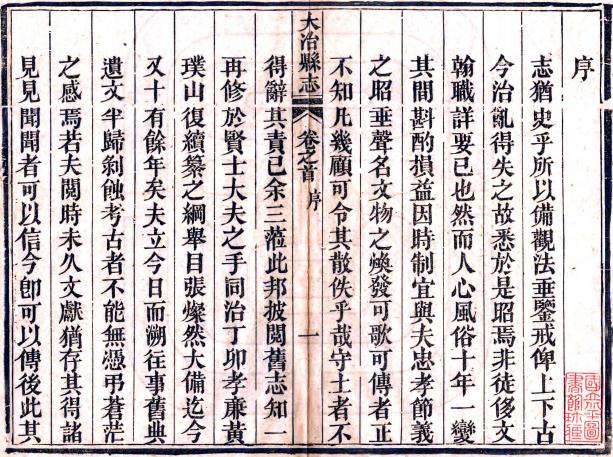 序
志猶史乎所以備觀法垂鑒戒俾上下古
今治亂得失之故悉於是昭焉非徒侈文
翰職詳要已也然而人心風俗十年一變
其間斟酌損益因時制宜與夫忠孝節義
之昭垂聲名文物之煥發可歌可傳者正
不知凡幾顧可令其散佚乎哉守土者不
大冶縣志
卷之首 序
一
得辭其責已余三蒞此邦披閱舊志知一
再修於賢士大夫之手同治丁卯孝廉黃
璞山復續纂之綱舉目張燦然大備迄今
又十有餘年矣夫立今日而溯往事舊典
遺文半歸剝蝕考古者不能無憑弔蒼茫
之感焉若夫閱時未久文獻猶存其得諸
見見聞聞者可以信今即可以傳後此其